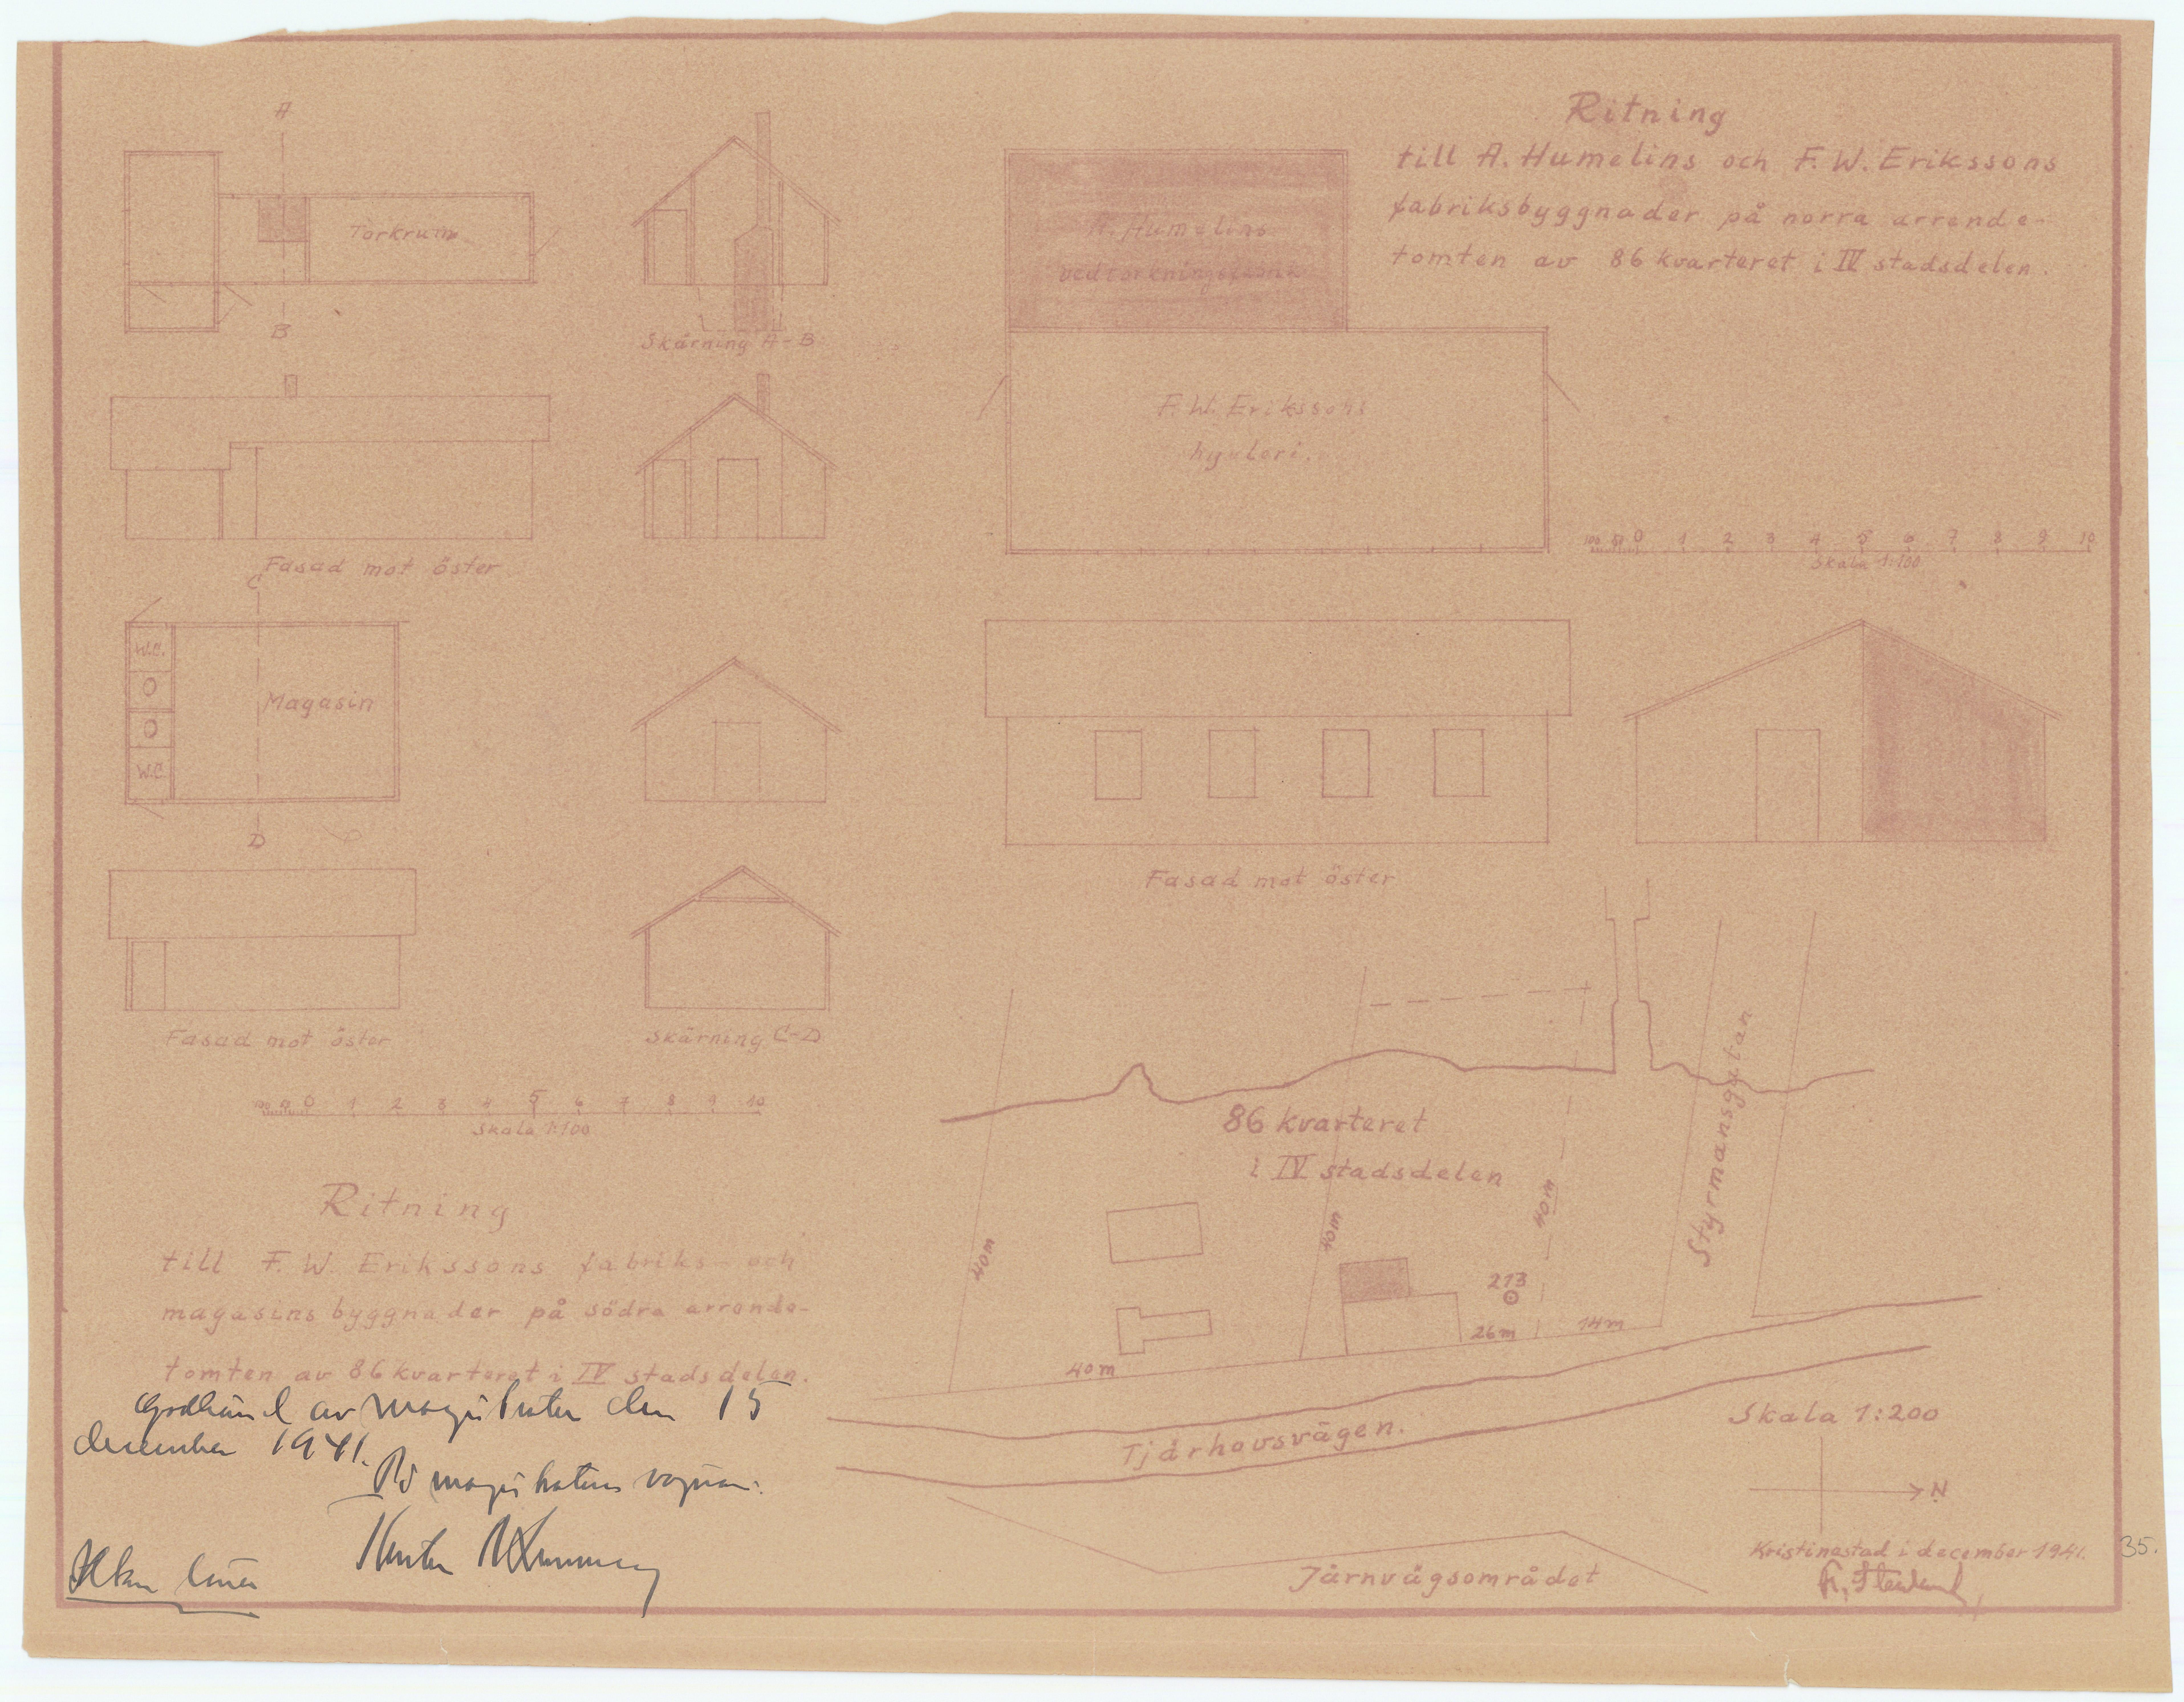 Ritning
till A. Humelins och F. W. Erikssons
fabriksbyggnader på norra arrende-
tomten av 86 kvarteret i IV stadsdelen.
A
Torkrum
B
Skärning A-B
Fasad mot öster
A. Humelins
F. W. Erikssons
hyvleri.
100 50 0 1 2 3 4 5 6 7 8 9 10
Skala 1:100
C
W.C.
Magasin
W.C.
D
Fasad mot öster
Skärning C-D
Fasad mot öster
100 50 0 1 2 3 4 5 6 7 8 9 10
Skala 1:100
Ritning
till F. W. Erikssons fabriks- och
magasinsbyggnader på södra arrende-
tomten av 86 kvarteret i IV stadsdelen.
86 kvarteret
i IV stadsdelen
Styrmansgatan
40m
40m
40m
213
26m
14m
40m
Tjärhovsvägen.
Järnvägsområdet
Skala 1:200
N
Kristinestad i december 1941.
35.
av magistraten den 15
december 1941.
På magistratens vägnar: